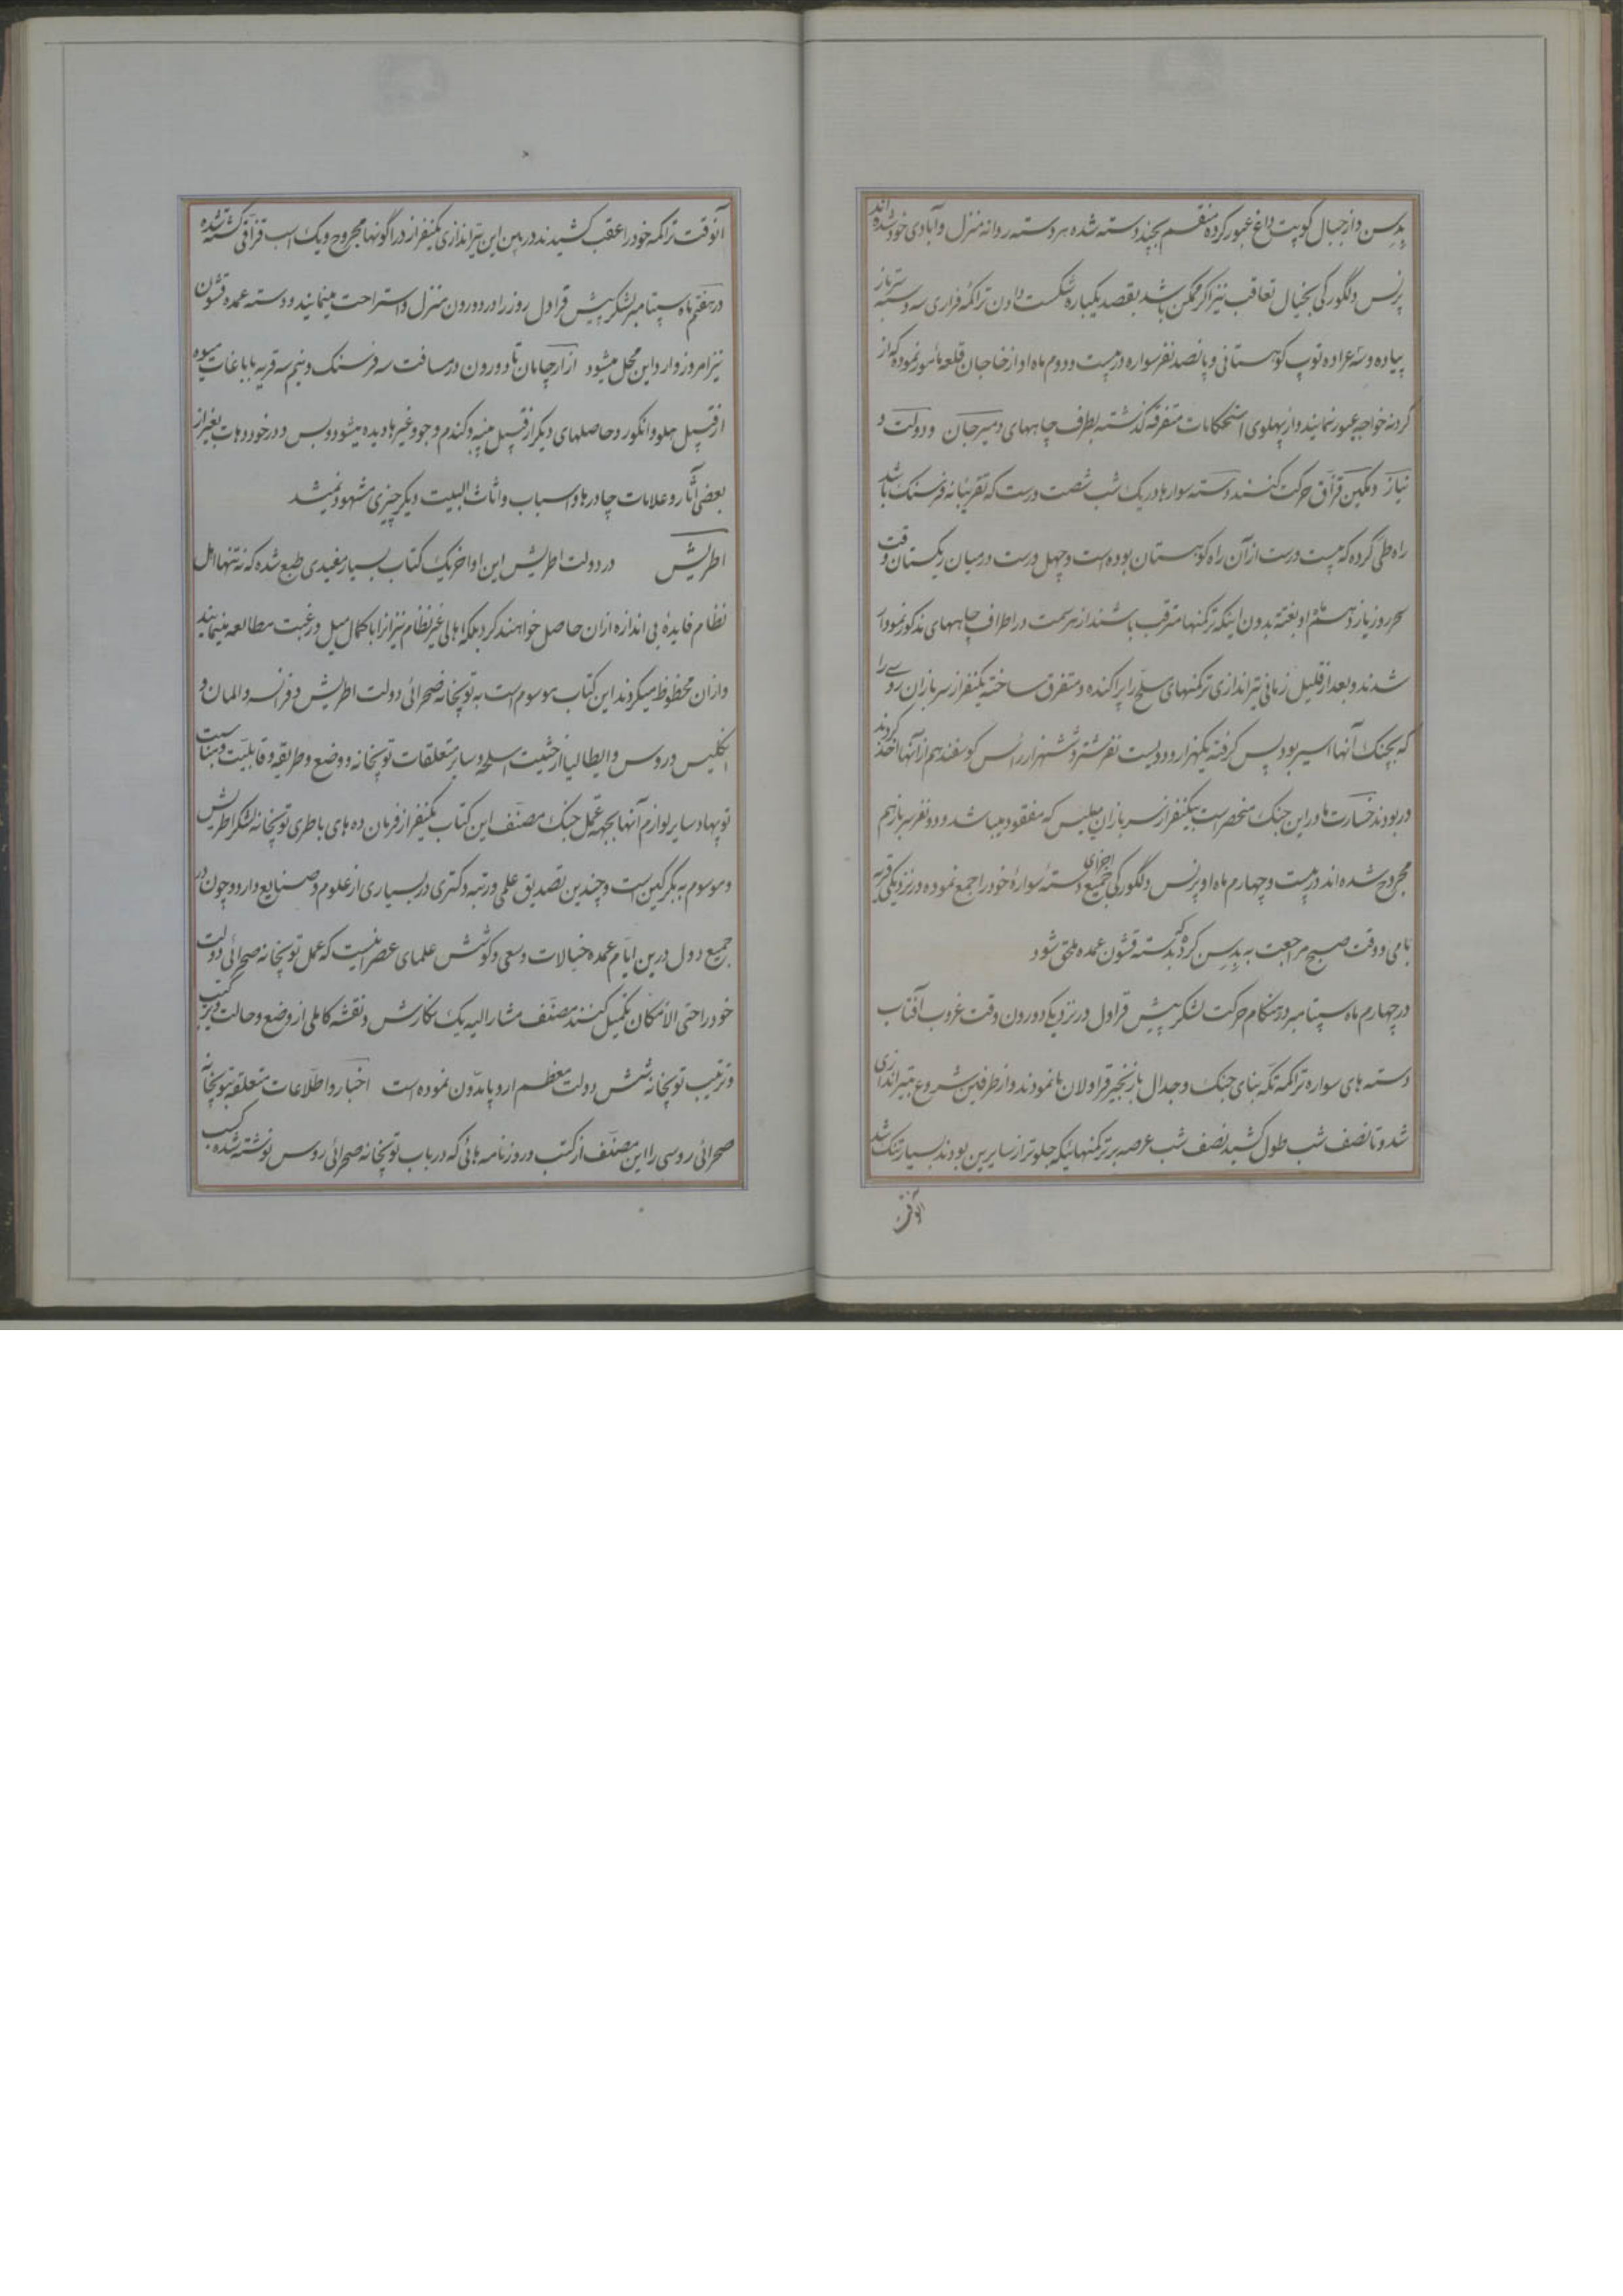 پدسن و از جبال کوپت داغ عبور کرده منقسم بچند دسته شده هر دسته روانه منزل و آبادی خود شده‌اند
پرنس دلگورکی بخیال تعاقب نیز اگر ممکن باشد بقصد یکباره شکست دادن تراکمه فراری سه دسته سرباز
پیاده و سه عراده توپ کوهستانی و پانصد نفر سواره در بیست و دوم ماه او از خاجان قلعه مأمور نموده که از
گردنه خواجه عبور نمایند و از پهلوی استحکامات متفرقه گذشته بطرف چاههای دمیرجان و دولت و
نیاز و مکین قراق حرکت کنند دسته سوارها در یک شب شصت درست که تقریبا نه فرسنگ باشد
راه طی کرده که بیست درست از آن راه کوهستان بوده است و چهل درست در میان ریگستان و وقت
سحر روز یازدهم ماه او بغتة بدون اینکه ترکمنها مترقب باشند از هر سمت در اطراف چاههای مذکور نمودار
شدند و بعد از قلیل زمانی تیراندازی ترکمنهای مسلح را پراکنده و متفرق ساخته یکنفر از سربازان روسی را
که بچنک آنها اسیر بود پس گرفته یکهزار و دویست نفر شتر و ششهزار رأس گوسفند هم از آنها اخذ کردند
در بودند خسارت ها در این جنک منحصر است بیکنفر از سربازان پلیس که مفقود میباشد و دو نفر سرباز هم
مجروح شده اند در بیست و چهارم ماه او پرنس دلگورکی جمیع اجزای دسته سواره خود را جمع نموده در نزدیکی قریه
بامی و وقت صبح مراجعت به پدسن کرد که بدسته قشون عمده ملحق شود
در چهارم ماه سپتامبر در هنگام حرکت لشکر پیش قراول در نزدیکی دورون وقت غروب آفتاب
دسته های سواره تراکمه تکه بنای جنک و جدال با زنجیر قراولان ما نمودند و از طرفین شروع بتیراندازی
شد و تا نصف شب طول کشید نصف شب عرصه بر ترکمنهائیکه جلوتر از سایرین بودند بسیار تنک شد
آنوقت
آنوقت تراکمه خود را عقب کشیدند در بین این تیراندازی یکنفر از دراگونها مجروح و یک اسب قزاقی کشته شده
در هفتم ماه سپتامبر لشکر پیش قراول روز را در دورون منزل و استراحت مینمایند و دسته عمده قشون
نیز امروز وارد این محل میشود از ارچامان تا دورون در مسافت سه فرسنک و نیم سه قریه با باغات میوه
از قبیل هلو و انگور و حاصلهای دیگر از قبیل پنبه و گندم و جو و غیرها دیده میشود و بس و در خود دهات بغیر از
بعضی آثار و علامات چادرها و اسباب و اثاث البیت دیگر چیزی مشهود نمیشد
اطریش در دولت اطریش این اواخر یک کتاب بسیار مفیدی طبع شده که نه تنها اهل
نظام فایدهٔ بی اندازه از ان حاصل خواهند کرد بلکه اهالی غیر نظام نیز آنرا با کمال میل و رغبت مطالعه مینمایند
و از ان محظوظ میگردند این کتاب موسوم است به توپخانه صحرائی دولت اطریش و فرانسه و المان و
انگلیس و روس و ایطالیا از حیثیت اسلحه و سایر متعلقات توپخانه و وضع و طریقه و قابلیت و مناسبت
توپها و سایر لوازم آنها بجهة عمل جنک مصنف این کتاب یکنفر از فرمان ده های باطری توپخانه لشکر اطریش
و موسوم به برگین است و چندین تصدیق علمی و رتبه دکتری در بسیاری از علوم و صنایع دارد و چون در
جمیع دول درین ایام عمده خیالات و سعی و کوشش علمای عصر اینست که عمل توپخانه صحرائی دولت
خود را حتی الامکان تکمیل کنند مصنف مشارالیه یک نگارش و نقشه کاملی از وضع و حالت و ترکیب
و ترتیب توپخانه شش دولت معظم اروپا مدون نموده است اخبار و اطلاعات متعلقه بتوپخانه
صحرائی روسی را این مصنف از کتب و روزنامه هائی که در باب توپخانه صحرائی روس نوشته شده کسب